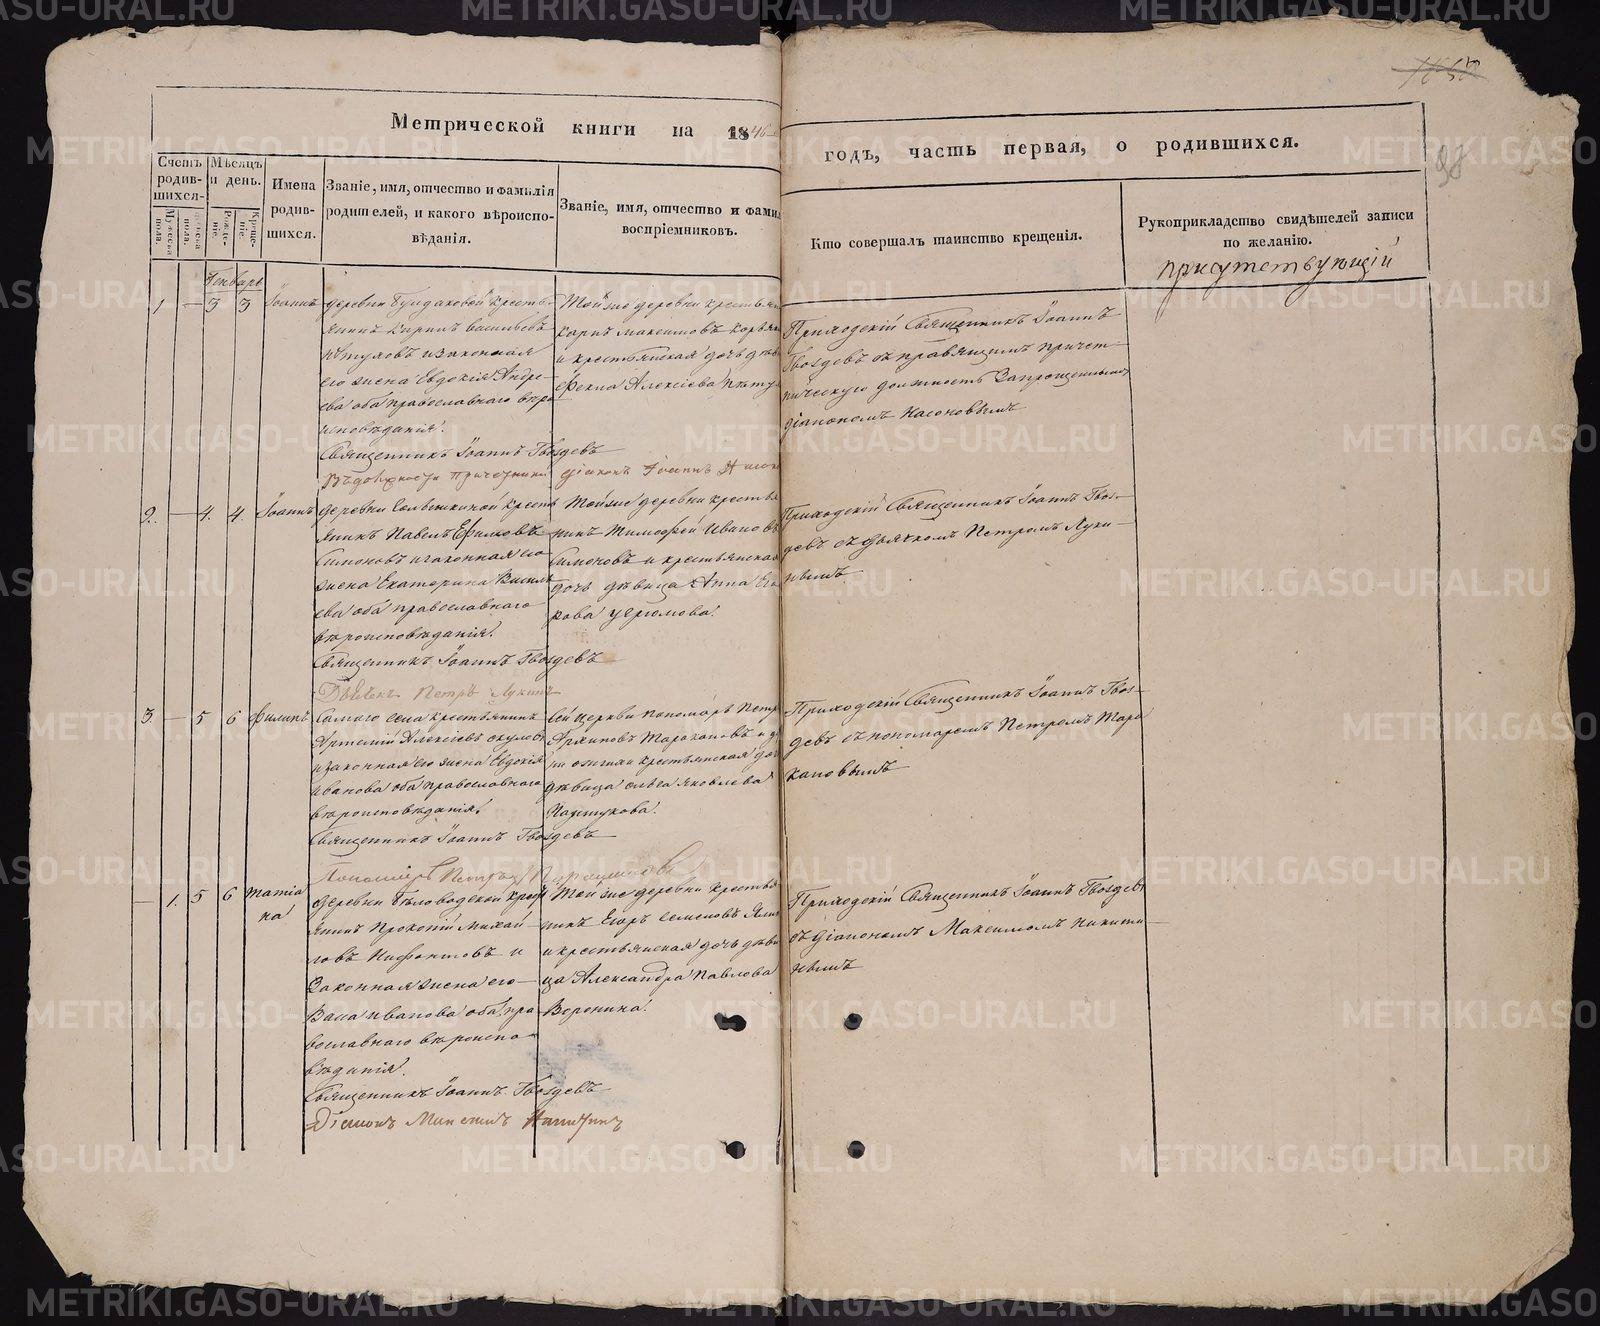 Метрической книги на 1846
годъ, часть первая, о родившихся.
98
Счетъ родив-шихся.
Мужеска пола.
Женска пола.
Мѣсяцъ и день.
Рожде-ніе.
Креще-ніе.
Имена родив-шихся.
Званіе, имя, отчество и фамилія
родителей, и какого вѣроиспо-
вѣданія.
Званіе, имя, отчество и фами
воспріемниковъ.
Кто совершалъ таинство крещенія.
Рукоприкладство свидѣтелей записи
по желанію.
присутствующій
Генварь
1 — 3 3 Іоаннъ
деревни крестья-
янинъ Карпъ Васильевъ
Пѣтуховъ и законная
его жена Евдокія Андре-
ева оба православнаго вѣро
исповѣданія.
Священникъ Іоаннъ Гвоздевъ
діаконъ Іоаннъ
Той же деревни крестьян
Карпъ Максимовъ
и крестьянская дочь дѣв
Фекла Алексіева Пѣту
Приходскій Священникъ Іоаннъ
Гвоздевъ съ правящимъ причет-
ническую должность Запрещеннымъ
діакономъ Насоновымъ
2. — 4. 4. Іоаннъ
деревни крестья
янинъ Павелъ Ефимовъ
Симоновъ и законная его
жена Екатерина Василь
ева оба православнаго
вѣроисповѣданія.
Священникъ Іоаннъ Гвоздевъ
Дьячекъ Петръ Лукинъ
Той же деревни крестья
нинъ Тимофей Ивановъ
Симоновъ и крестьянская
дочь дѣвица Анна Его
рова Угрюмова.
Приходскій Священникъ Іоаннъ Гвоз-
девъ съ дьячкомъ Петромъ Луки-
нымъ
3. — 5 6 Филипъ
Самаго села крестьянинъ
Артемій Алексіевъ
и законная его жена Евдокія
Иванова оба православнаго
вѣроисповѣданія.
Священникъ Іоаннъ Гвоздевъ
Пономарь Петръ
Сей церкви пономарь Петръ
Архиповъ Таракановъ и
крестьянская до
дѣвица Яковлева
Приходскій Священникъ Іоаннъ Гвоз-
девъ съ пономаремъ Петромъ Тара
кановымъ
— 1. 5 6 Татіа
на
деревни Бѣловодской крес
янинъ Прокопій Михай-
ловъ Нифонтовъ и
Законная жена его
Васа Иванова оба пра
вославнаго вѣроиспо-
вѣданія.
Священникъ Іоаннъ Гвоздевъ
Діаконъ Максимъ Никитинъ
Той же деревни крестья
нинъ Егоръ Семеновъ
и крестьянская дочь дѣви
ца Александра Павлова
Воронина.
Приходскій Священникъ Іоаннъ Гвоздевъ
съ діакономъ Максимомъ Никити-
нымъ
METRIKI.GASO-URAL.RU